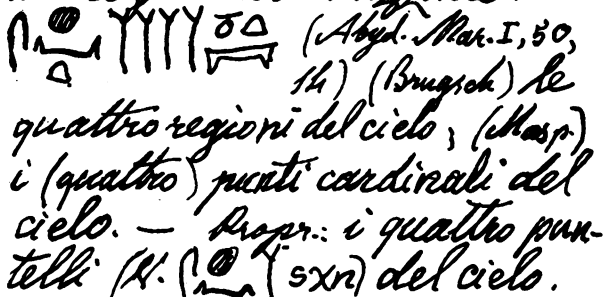 (Abyd. Mar. I, 50,
14) (Brugsch) le
quattro regioni del cielo; (Masp.)
i (quattro) punti cardinali del
cielo. — Propr.: i quattro pun-
telli (V. sxn) del cielo.